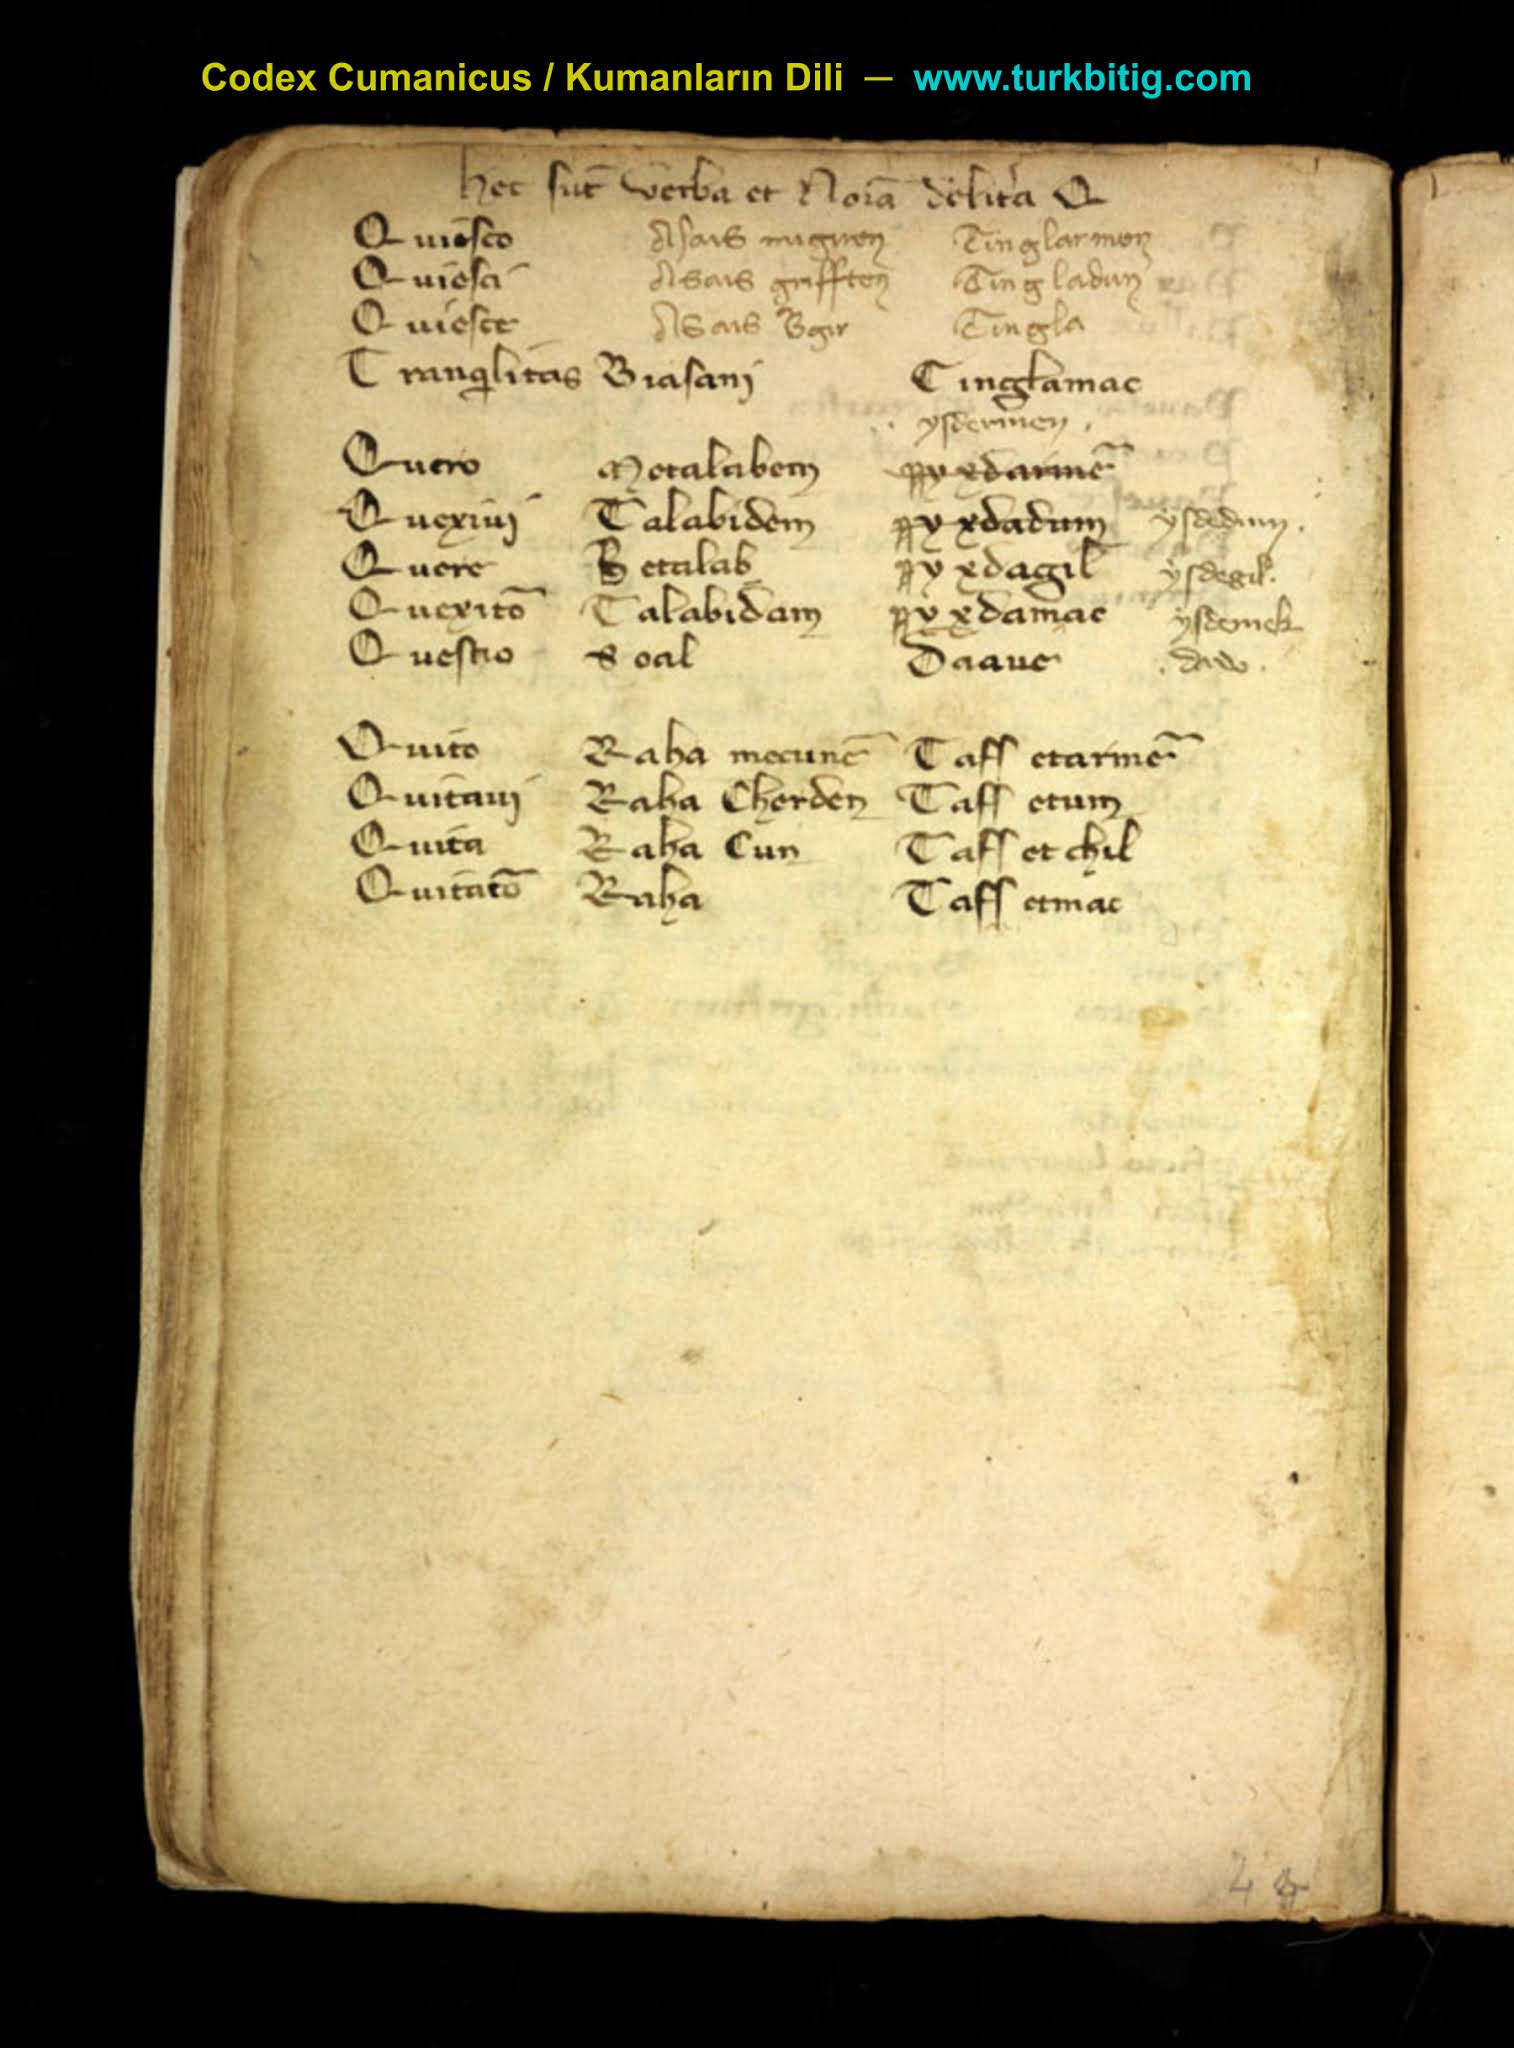 Codex Cumanicus / Kumanların Dili – www.turkbitig.com
hec sut̄ verba et Noīa delit'a Q
Quiesco Asais miginen Tinglarmen
Quieui Asais grifften Tingladum
Quiesce Asais Bgir Tingla
Tranqlitas Biasani Tinglamac
ysdermen
Quero Metalabem yxdarmē
Quexiui Talabidem yxdadum ysdedum
Quere Betalab yxdagil ysdegil
Quexitō Talabidam yxdamac ysdemek
Questio Soal Daaue daw
Quito Raha mecunē Taff etarmē
Quitaui Raha Cherden Taff etum
Quita Raha Cun Taff etchil
Quitatō Raha Taff etmac